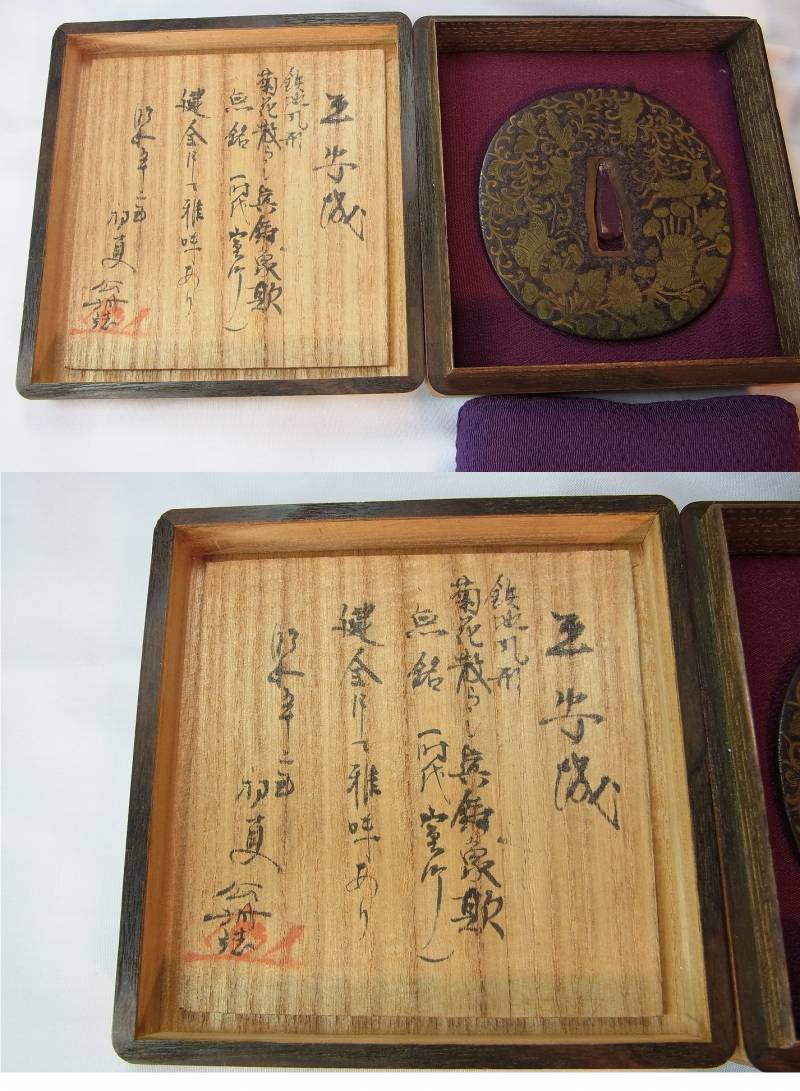 平安城
鉄地丸形
菊花散らし真鍮象嵌
無銘 (時代 室町)
健全にして雅味あり
初夏
平安城
鉄地丸形
菊花散らし真鍮象嵌
無銘 (時代 室町)
健全にして雅味あり
初夏